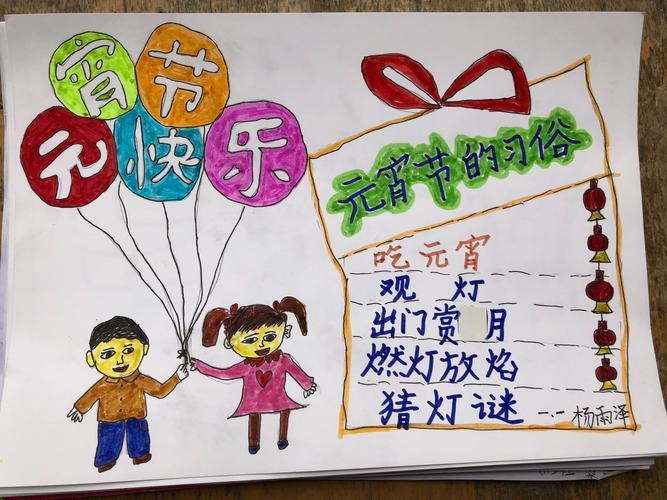 元宵节快乐
元宵节的习俗
吃元宵
观灯
出门赏月
燃灯放焰
猜灯谜
一.一 杨雨泽